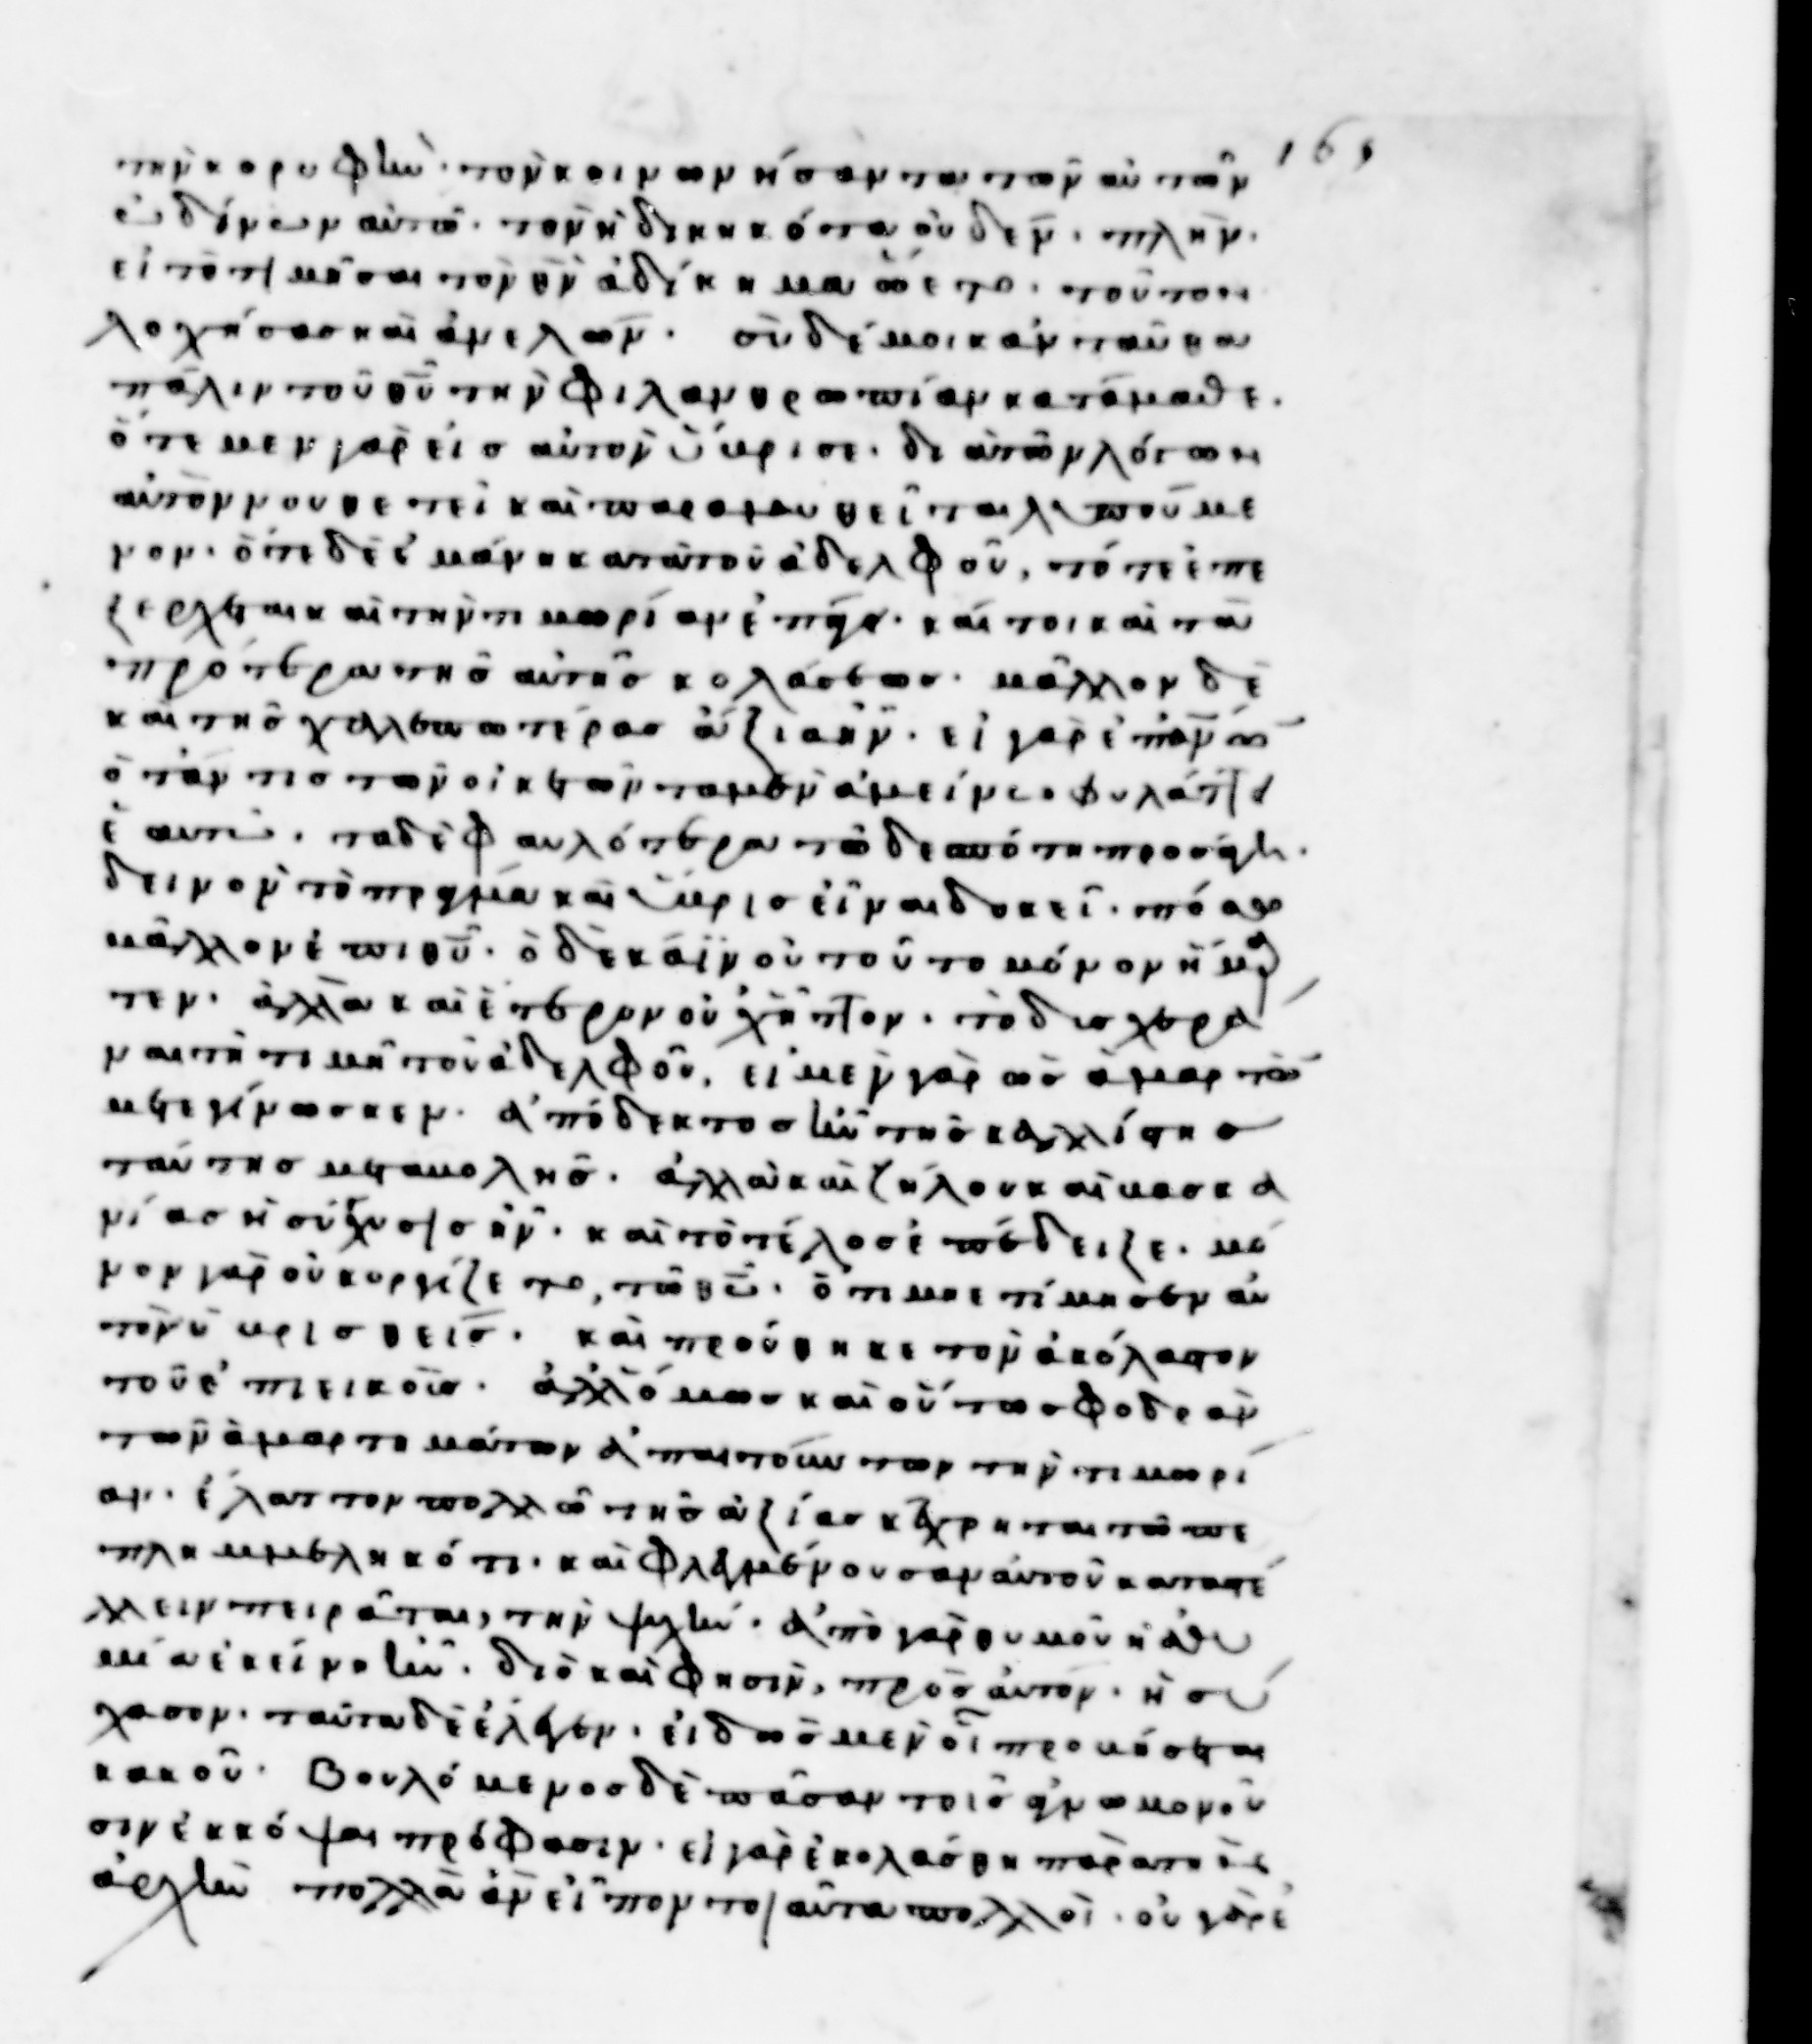 165
τὴν κορυφὴν· τὸν κοινωνήσαντα τῶν αὐτῶν
ὠδίνων αὐτῶ· τὸν ἠδικηκότα οὐδὲν· πλὴν·
εἰ τὸ τιμῆσαι τὸν θν ἀδίκημα ὤετο· τοῦτον
λοχήσας καὶ ἀνελών. σὺ δέ μοι κἀνταῦθα
πάλιν τοῦ θυ τὴν φιλανθρωπίαν κατάμαθε.
ὅτε μεν γὰρ εἰς αὐτὸν ὕβρισε· διὰ τῶν λόγων
αὐτὸν νουθετεῖ καὶ παραμυθεῖται λυπούμε
νον· ὅτε δὲ ἐμάνη κατὰ τοῦ ἀδελφοῦ, τότε ἐπε
ξέρχεται καὶ τὴν τιμωρίαν ἐπῆγε· καί τοι καὶ τὰ
πρότερα τῆς αὐτῆς κολάσεως· μᾶλλον δὲ
καὶ τῆς χαλεπωτέρας ἄξια ἦν· εἰ γὰρ ἐπ ἀνων
ὅταν τις τῶν οἰκετῶν τὰ μὲν ἀμείνω φυλάττει
ἑαυτῶ· τὰ δὲ φαυλότερα τῶ δεσπότη προσάγη·
δεινὸν τὸ πρᾶγμα καὶ ὕβρις εἶναι δοκεῖ· πόσω
μᾶλλον ἐπι θυ· ὁ δὲ κάϊν οὐ τοῦτο μόνον ἥμαρ
τεν· ἀλλὰ καὶ ἕτερον οὐχ ἧττον· τὸ δυσχερᾶ
ναι τῆ τιμῆ τοῦ ἀδελφοῦ, εἰ μὲν γὰρ ὡς ἁμαρτὼν
μετεγίνωσκεν· ἀπόδεκτος ἦν τῆς καλλίστης
ταύτης μεταβολῆς· ἀλλὰ καὶ ζήλου καὶ βασκα
νίας ἡ σύγχυσις ἦν· καὶ τὸ τέλος ἐπέδειξε· μό
νον γὰρ οὐκ ὠργίζετο, τῶ θω· ὅτι μὴ ἐτίμησεν αὐ
τὸν ὑβρισθείς· καὶ προύθηκε τὸν ἀκόλαστον
τοῦ ἐπιεικοῖς· ἀλλ' ὅμως καὶ οὕτω σφοδρὰν
τῶν ἁμαρτημάτων ἀπαιτούντων τὴν τιμωρί
αν· ἐλάττον πολλῶ τῆς ἀξίας κέχρηται τῶ πε
πλημμεληκότι· καὶ φλεγμαίνουσαν αὐτοῦ καταστέ
λλειν πειρᾶται, τὴν ψυχὴν· ἀπὸ γὰρ θυμοῦ ἡ ἀθυ
μία ἐκείνη ἦν· διὸ καὶ φησιν, πρὸς αὐτόν· ἡσύ
χασον· ταῦτα δὲ ἔλεγεν· εἰδὼς μὲν οἷ προβήσεται
κακοῦ· Βουλόμενος δὲ πᾶσαν τοῖς ἀγνωμονοῦ
σιν ἐκκόψαι πρόφασιν· εἰ γὰρ ἐκολάσθη παρὰ τὴν
ἀρχὴν πολλὰ ἂν εἶπον τοιαῦτα πολλοὶ· οὐ γὰρ ἐ